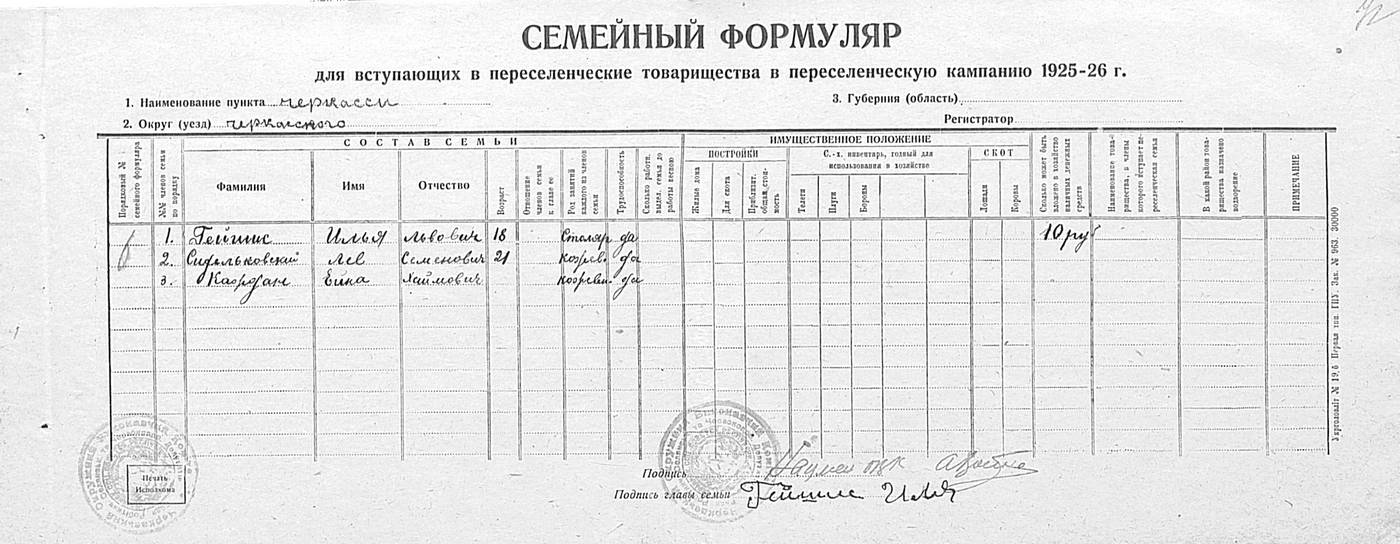 СЕМЕЙНЫЙ ФОРМУЛЯР
для вступающих в переселенческие товарищества в переселенческую кампанию 1925-26 г.
1. Наименование пункта черкасси
3. Губерния (область)
2. Округ (уезд) черкасского
Регистратор
СОСТАВ СЕМЬИ
ИМУЩЕСТВЕННОЕ ПОЛОЖЕНИЕ
Порядковый № семейного формуляра
№№ членов семьи по порядку
Фамилия
Имя
Отчество
Возраст
Отношение членов семьи к главе ее
Род занятий каждого из членов семьи
Трудоспособность
Сколько работн. выдел. семья до работы весною
ПОСТРОЙКИ
Жилые дома
Для скота
Приблизит. общая стоимость
С.-х. инвентарь, годный для использования в хозяйстве
Телеги
Плуги
Бороны
СКОТ
Лошади
Коровы
Сколько может быть вложено в хозяйство наличных денежных средств
Наименование товарищества, в члены которого вступает переселенческая семья
В какой район товарищества назначено водворение
ПРИМЕЧАНИЕ
1. Гейшис Илья Львович 18 Столяр да 10 руб
2. Сидельковский Лев Семенович 21 кожев. да
3. Каждан Хаймович кожевн. да
Печать Исполкома
Подпись
Подпись главы семьи Гейшис Илья
Укрголовліт № 19.6 Первая тип. ГПУ. Зак. № 963. 30000